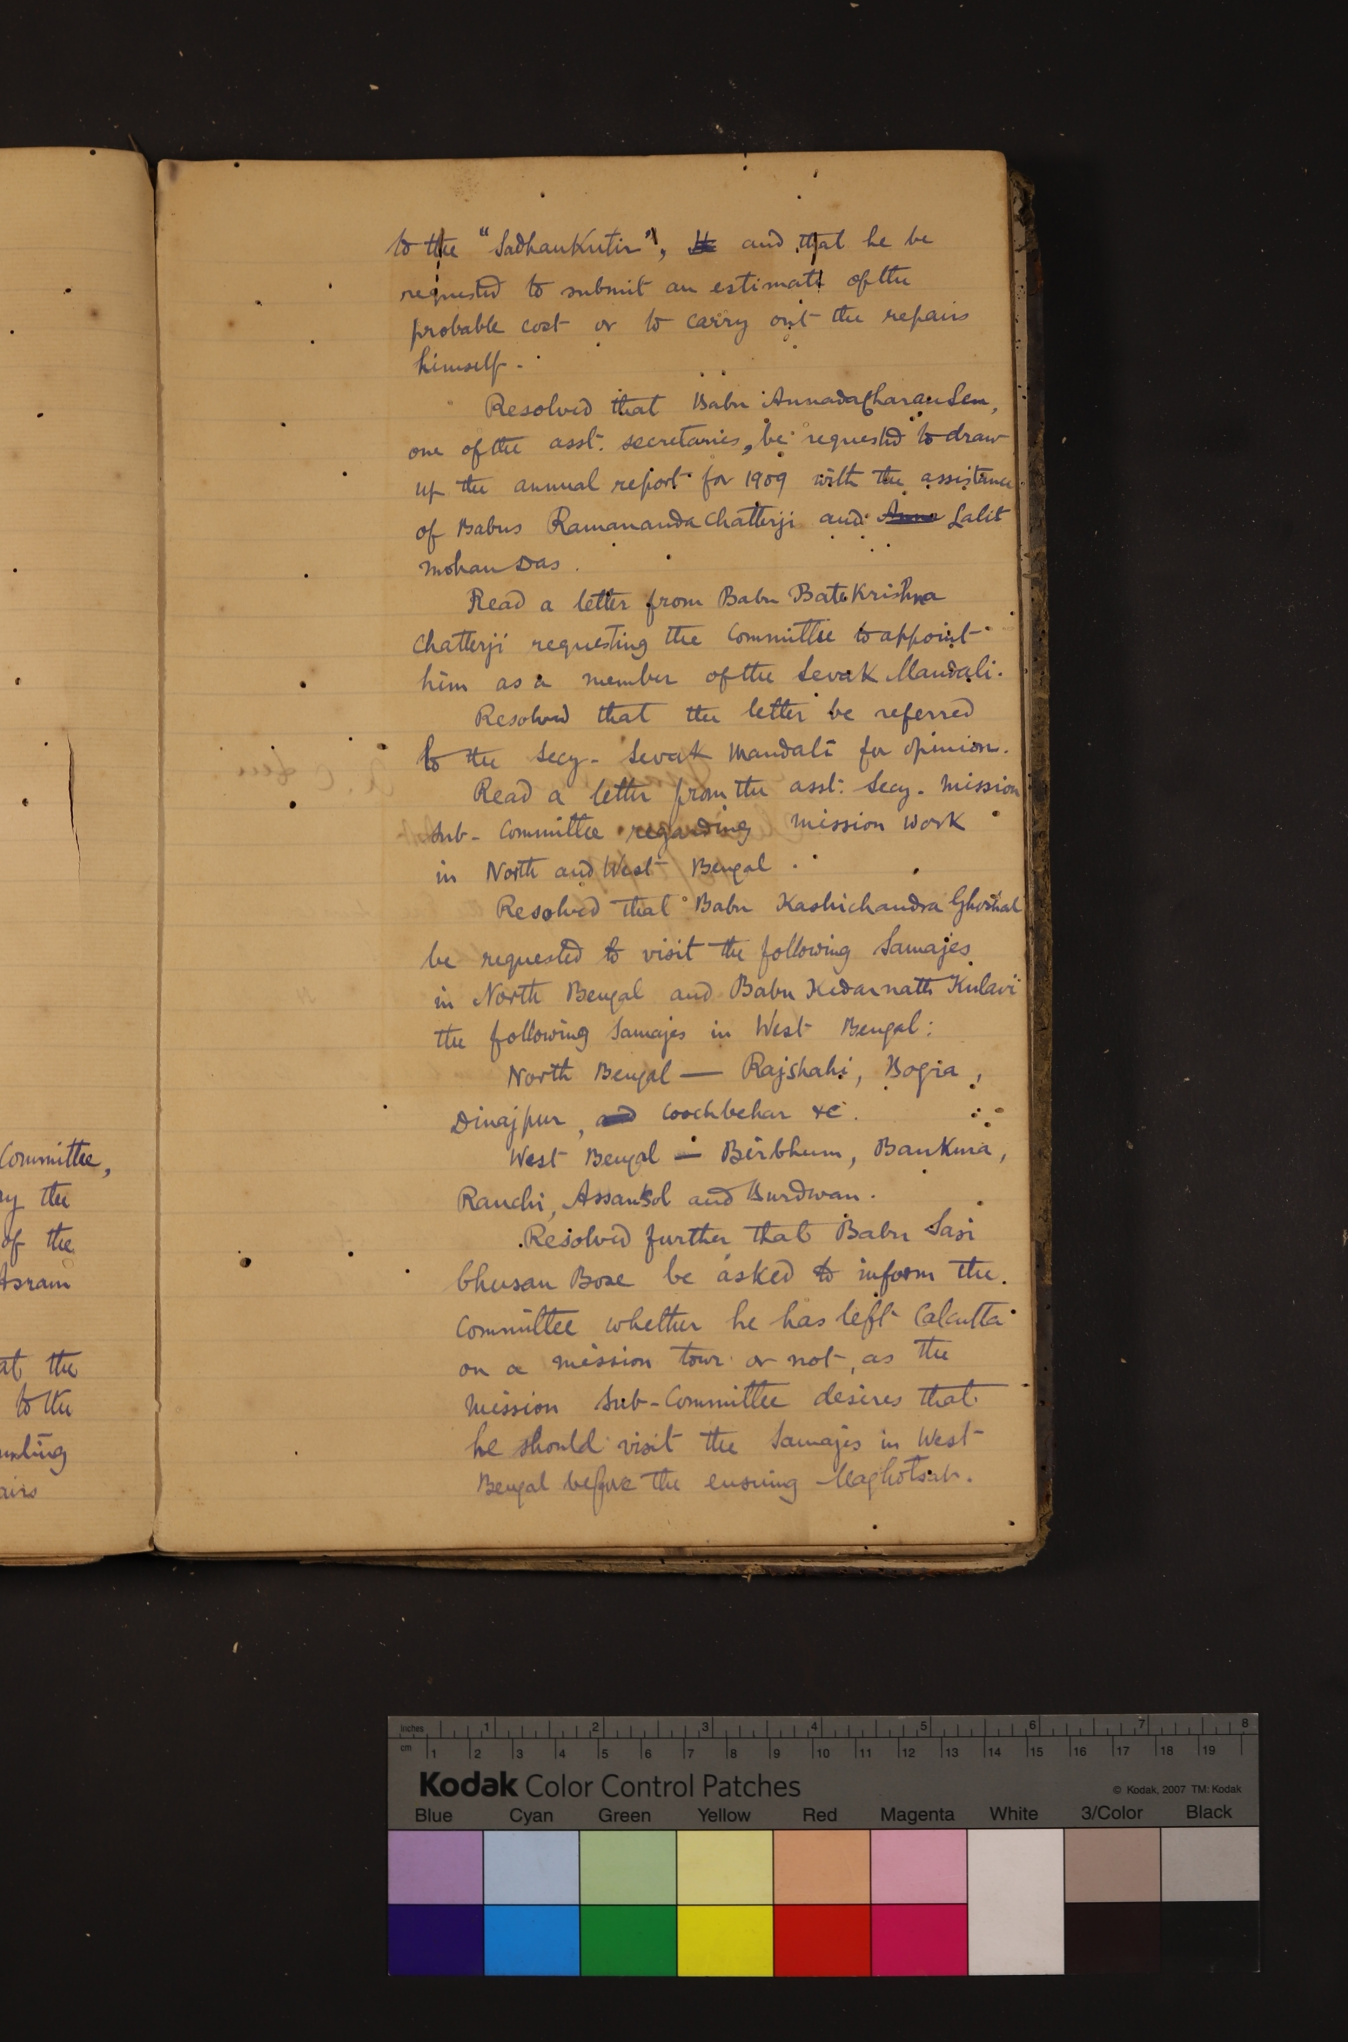 Committee,
ry the
of the
Asram
at the
to the
airs
to the "SadhanKutir", and that he be
requested to submit an estimate of the
probable cost or to carry out the repairs
himself.
Resolved that Babu Annadacharan Sen,
one of the asst. secretaries, be requested to draw
up the annual report for 1909 with the assistance
of Babus Ramananda Chatterji and Lalit
mohan Das.
Read a letter from Babu Batakrishna
Chatterji requesting the Committee to appoint
him as a member of the Sevak Mandali.
Resolved that the letter be referred
to the Secy. Sevak Mandali for opinion.
Read a letter from the asst. Secy. Mission
Sub-Committee regarding mission work
in North and West Bengal.
Resolved that Babu Kashichandra Ghoshal
be requested to visit the following Samajes
in North Bengal and Babu Kedarnath Kulavi
the following Samajes in West Bengal:
North Bengal — Rajshahi, Bogra,
Dinajpur, and Coochbehar &c.
West Bengal — Birbhum, Bankura,
Ranchi, Assansol and Burdwan.
Resolved further that Babu Sasi
bhusan Bose be asked to inform the
Committee whether he has left Calcutta
on a mission tour or not, as the
Mission Sub-Committee desires that
he should visit the Samajes in West
Bengal before the ensuing Maghotsab.
Inches 1 2 3 4 5 6 7 8
cm 1 2 3 4 5 6 7 8 9 10 11 12 13 14 15 16 17 18 19
Kodak Color Control Patches
© Kodak, 2007 TM: Kodak
Blue Cyan Green Yellow Red Magenta White 3/Color Black